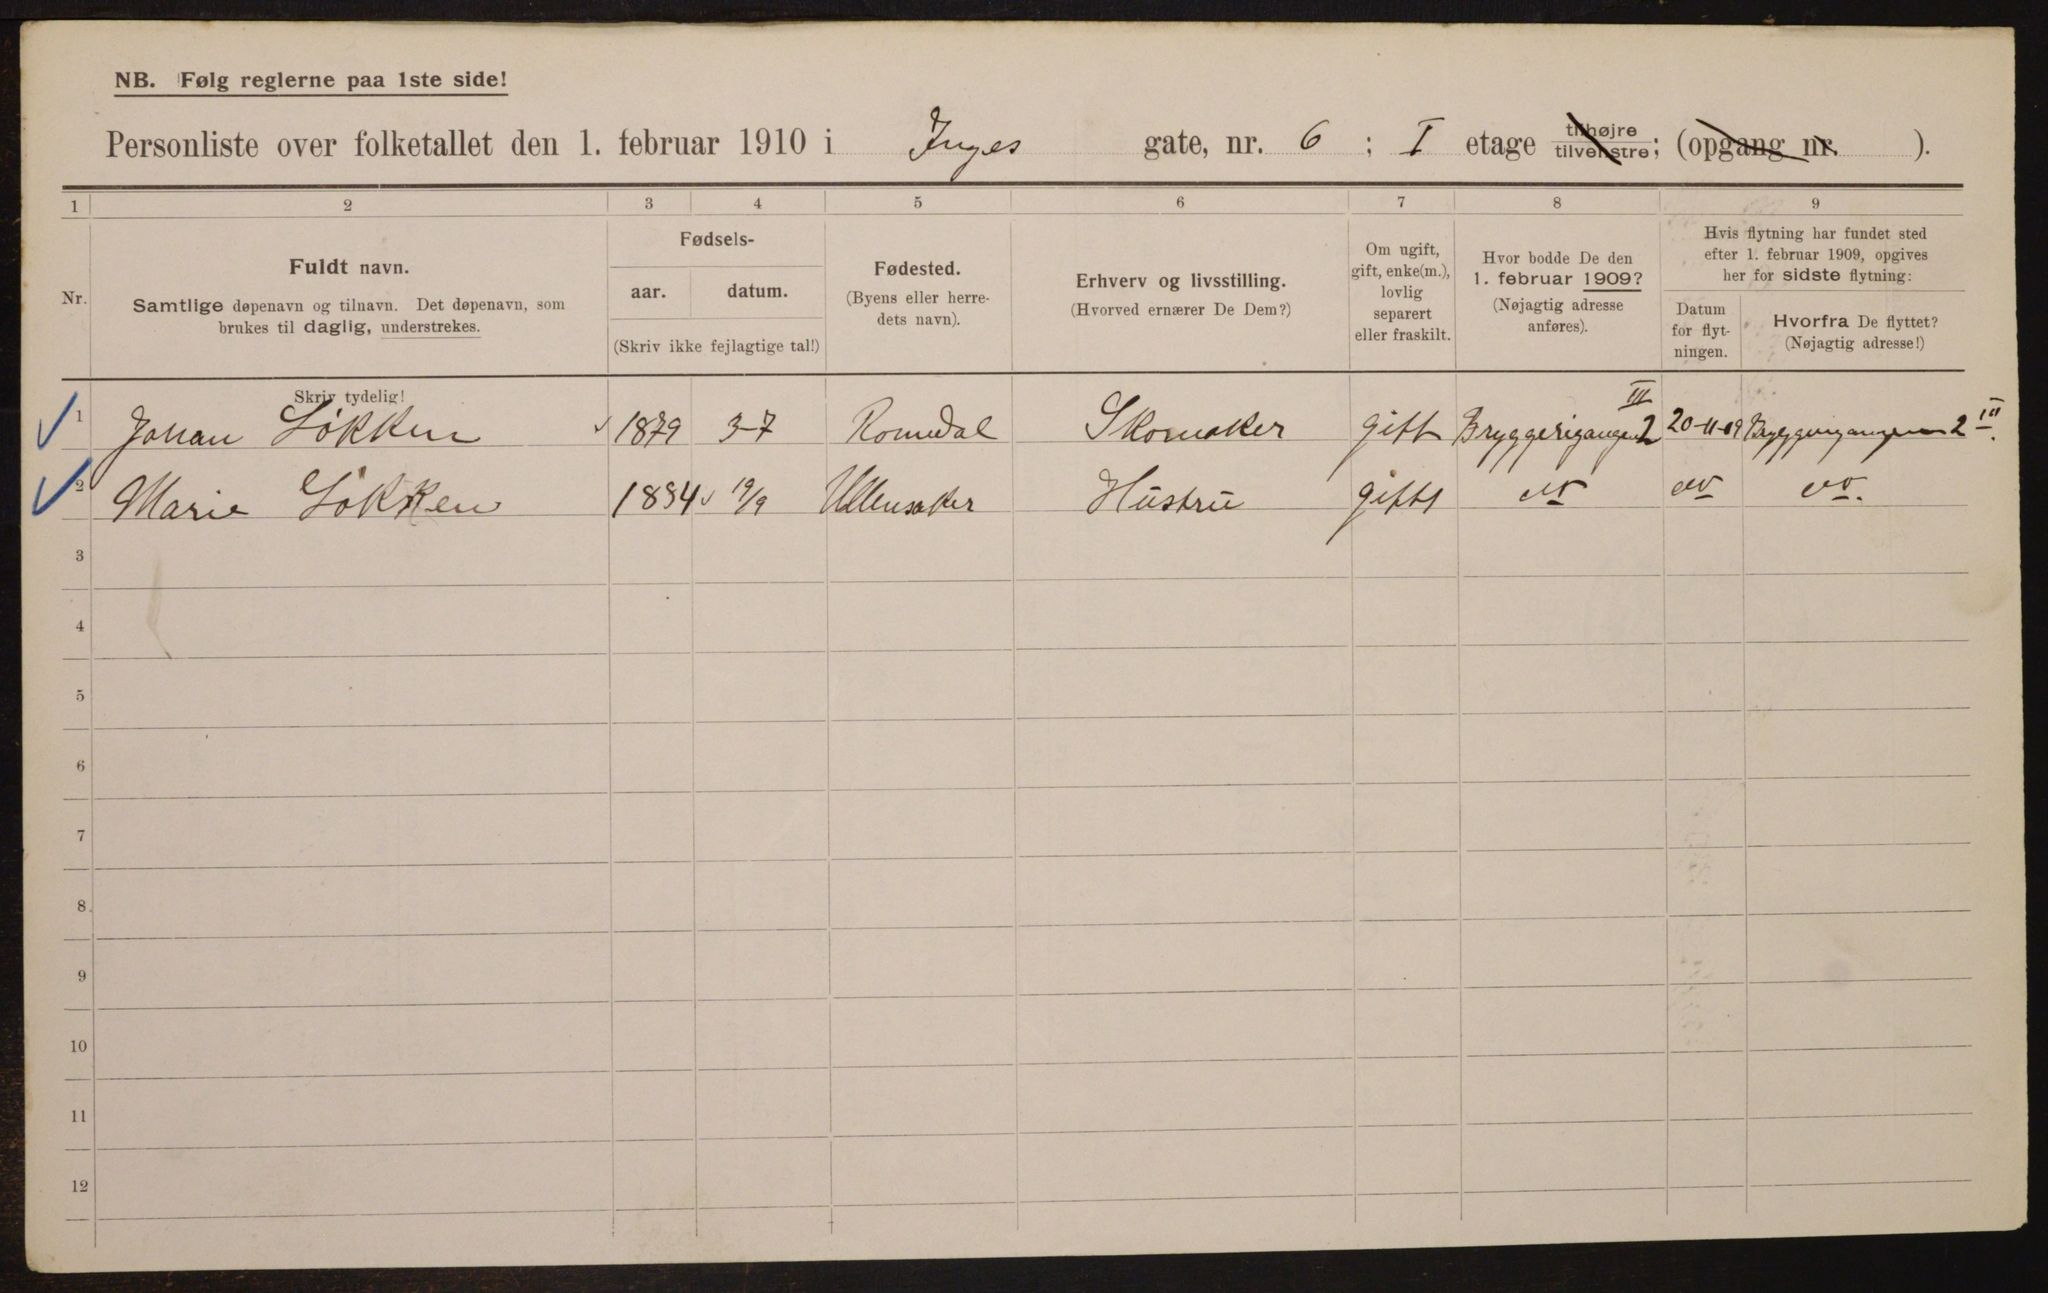 NB. Følg reglerne paa 1ste side!
Personliste over folketallet den 1. februar 1910 i Inges gate, nr. 6 ; I etage tilhøjre tilvenstre; (opgang nr. ).
1 2 3 4 5 6 7 8 9
Nr.
Fuldt navn.
Samtlige døpenavn og tilnavn. Det døpenavn, som
brukes til daglig, understrekes.
Skriv tydelig!
Fødsels-
aar. datum.
(Skriv ikke fejlagtige tal!)
Fødested.
(Byens eller herre-
dets navn).
Erhverv og livsstilling.
(Hvorved ernærer De Dem?)
Om ugift,
gift, enke(m.),
lovlig
separert
eller fraskilt.
Hvor bodde De den
1. februar 1909?
(Nøjagtig adresse
anføres).
Hvis flytning har fundet sted
efter 1. februar 1909, opgives
her for sidste flytning:
Datum
for flyt-
ningen.
Hvorfra De flyttet?
(Nøjagtig adresse!)
1 Johan Løkken 1879 3-7 Romedal Skomaker gift Bryggerigangen 2 III 20-11-09 Bryggerigangen 2 III.
2 Marie Løkken 1884 19/9 Ullensaker Hustru gift do do do.
3
4
5
6
7
8
9
10
11
12